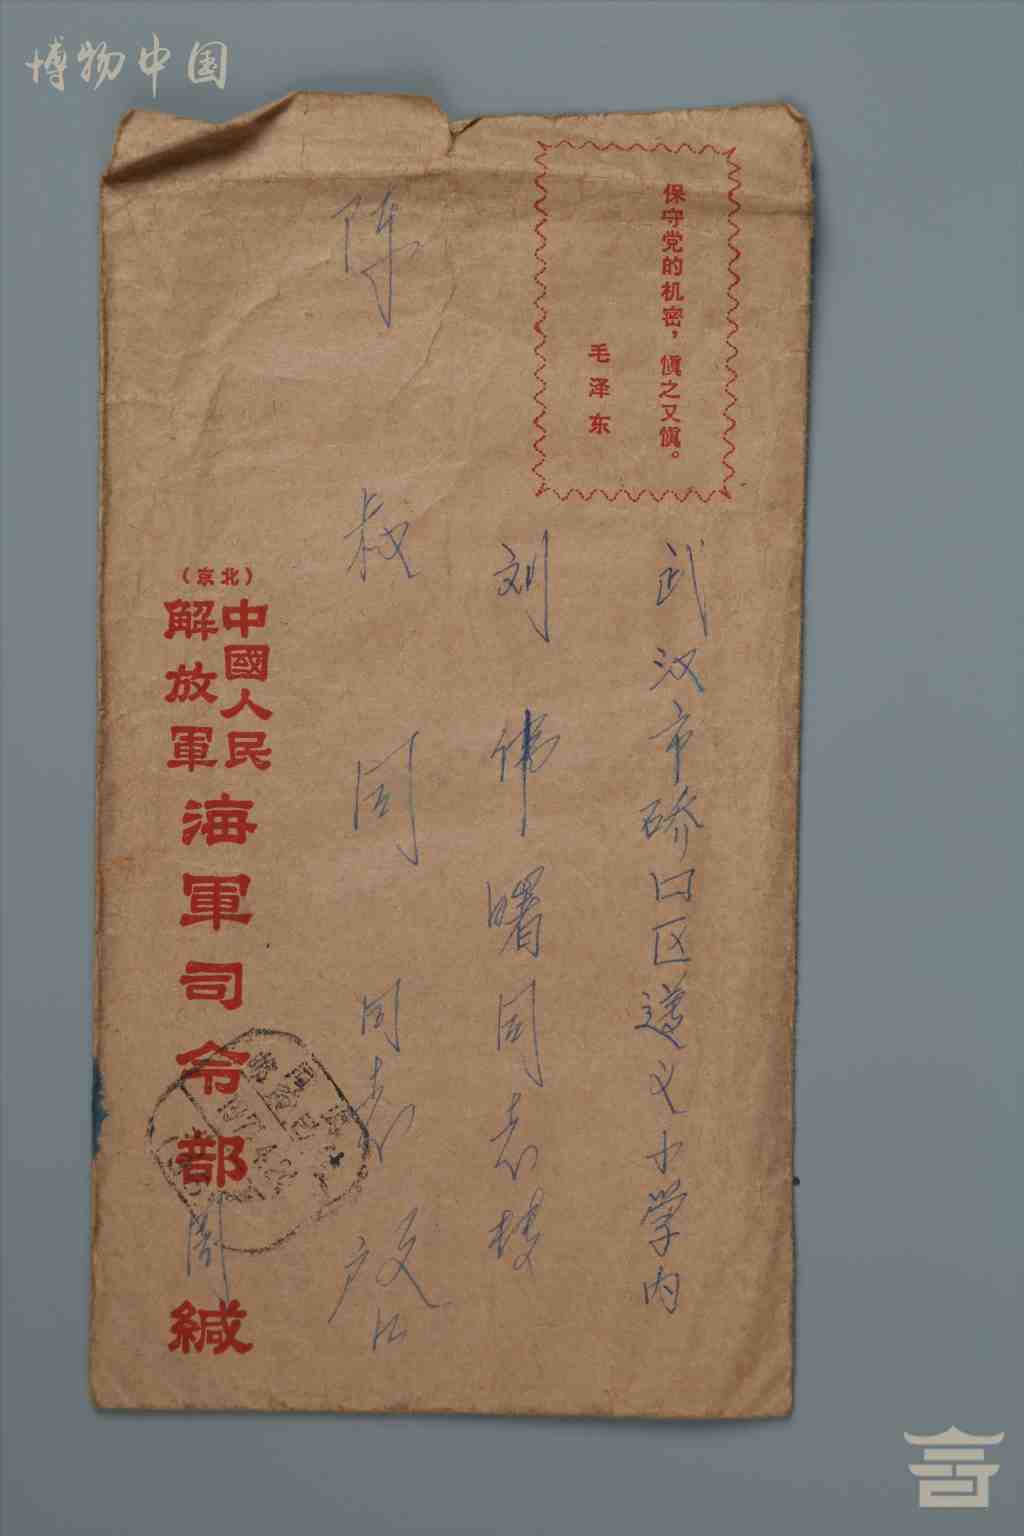 博物中国
保守党的机密，慎之又慎。
毛泽东
武汉市硚口区遵义小学内
刘伟曙同志转
陈叔同同志启
（北京）
中國人民
解放軍
海軍司令部
周
緘